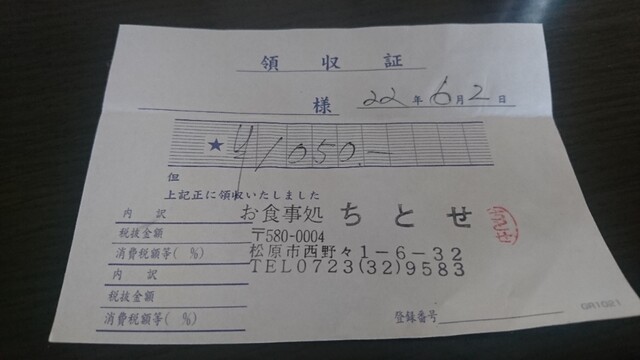 領収証
様 22年6月2日
★ ¥1050.-
但
上記正に領収いたしました
内訳
税抜金額
消費税額等( %)
内訳
税抜金額
消費税額等( %)
お食事処 ちとせ
〒580-0004
松原市西野々1-6-32
TEL0723(32)9583
登録番号
GR1021